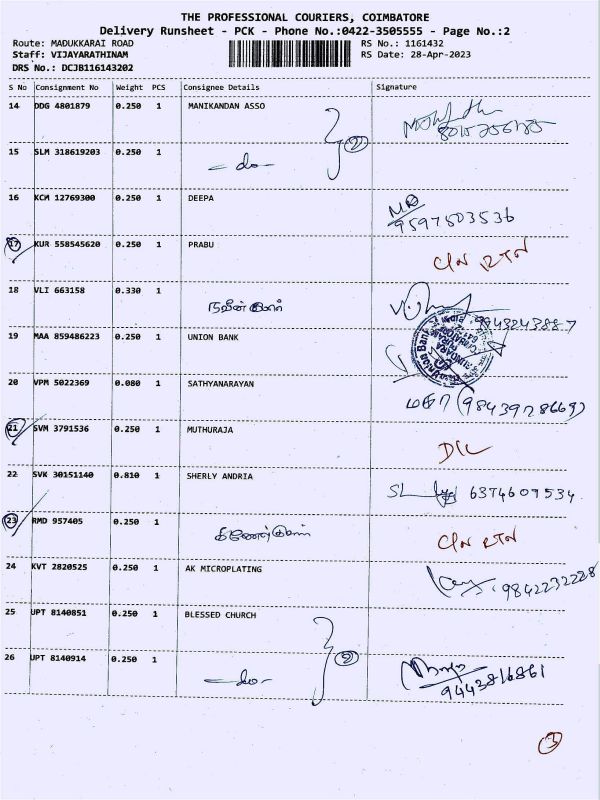 THE PROFESSIONAL COURIERS, COIMBATORE
Delivery Runsheet - PCK - Phone No.:0422-3505555 - Page No.:2
Route: MADUKKARAI ROAD
RS No.: 1161432
Staff: VIJAYARATHINAM
RS Date: 28-Apr-2023
DRS No.: DCJB116143202
S No Consignment No Weight PCS Consignee Details Signature
14 DDG 4801879 0.250 1 MANIKANDAN ASSO
2
15 SLM 318619203 0.250 1 - do -
16 KCM 12769300 0.250 1 DEEPA
9597503536
17 KUR 558545620 0.250 1 PRABU C/N RTN
18 VLI 663158 0.330 1 நவீன்குமார்
9843243887
19 MAA 859486223 0.250 1 UNION BANK
Union Bank
20 VPM 5022369 0.080 1 SATHYANARAYAN
21 SVM 3791536 0.250 1 MUTHURAJA D/L
22 SVK 30151140 0.810 1 SHERLY ANDRIA 6374609534
23 RMD 957405 0.250 1 C/N RTN
24 KVT 2820525 0.250 1 AK MICROPLATING 9842232228
25 UPT 8140851 0.250 1 BLESSED CHURCH
2
26 UPT 8140914 0.250 1 - do -
9443816861
3